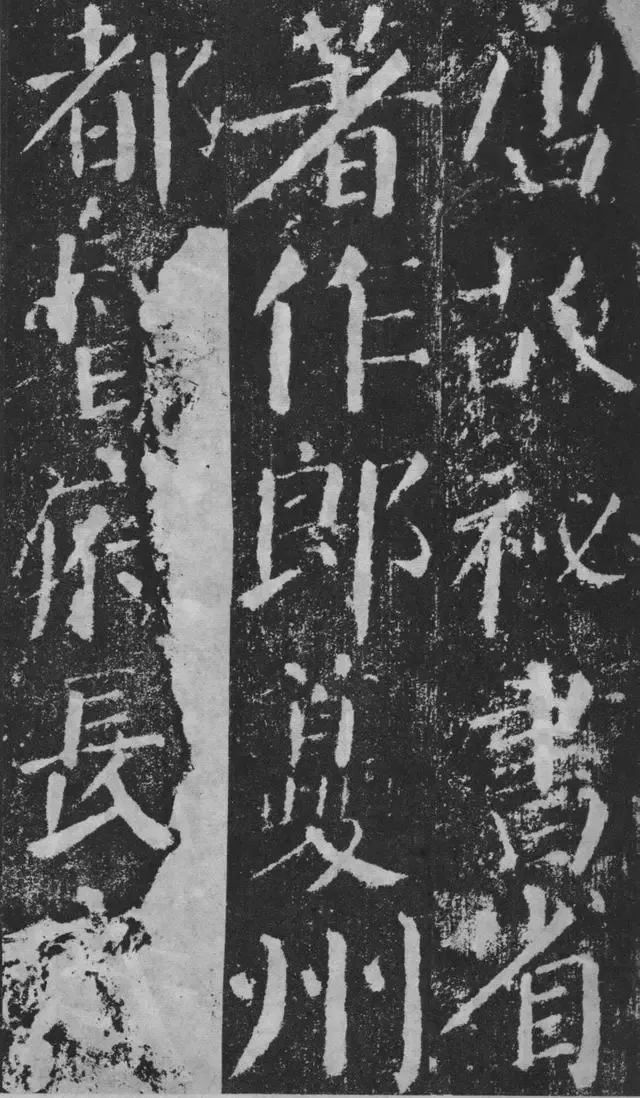 唐故祕書省
著作郎夔州
都督府長